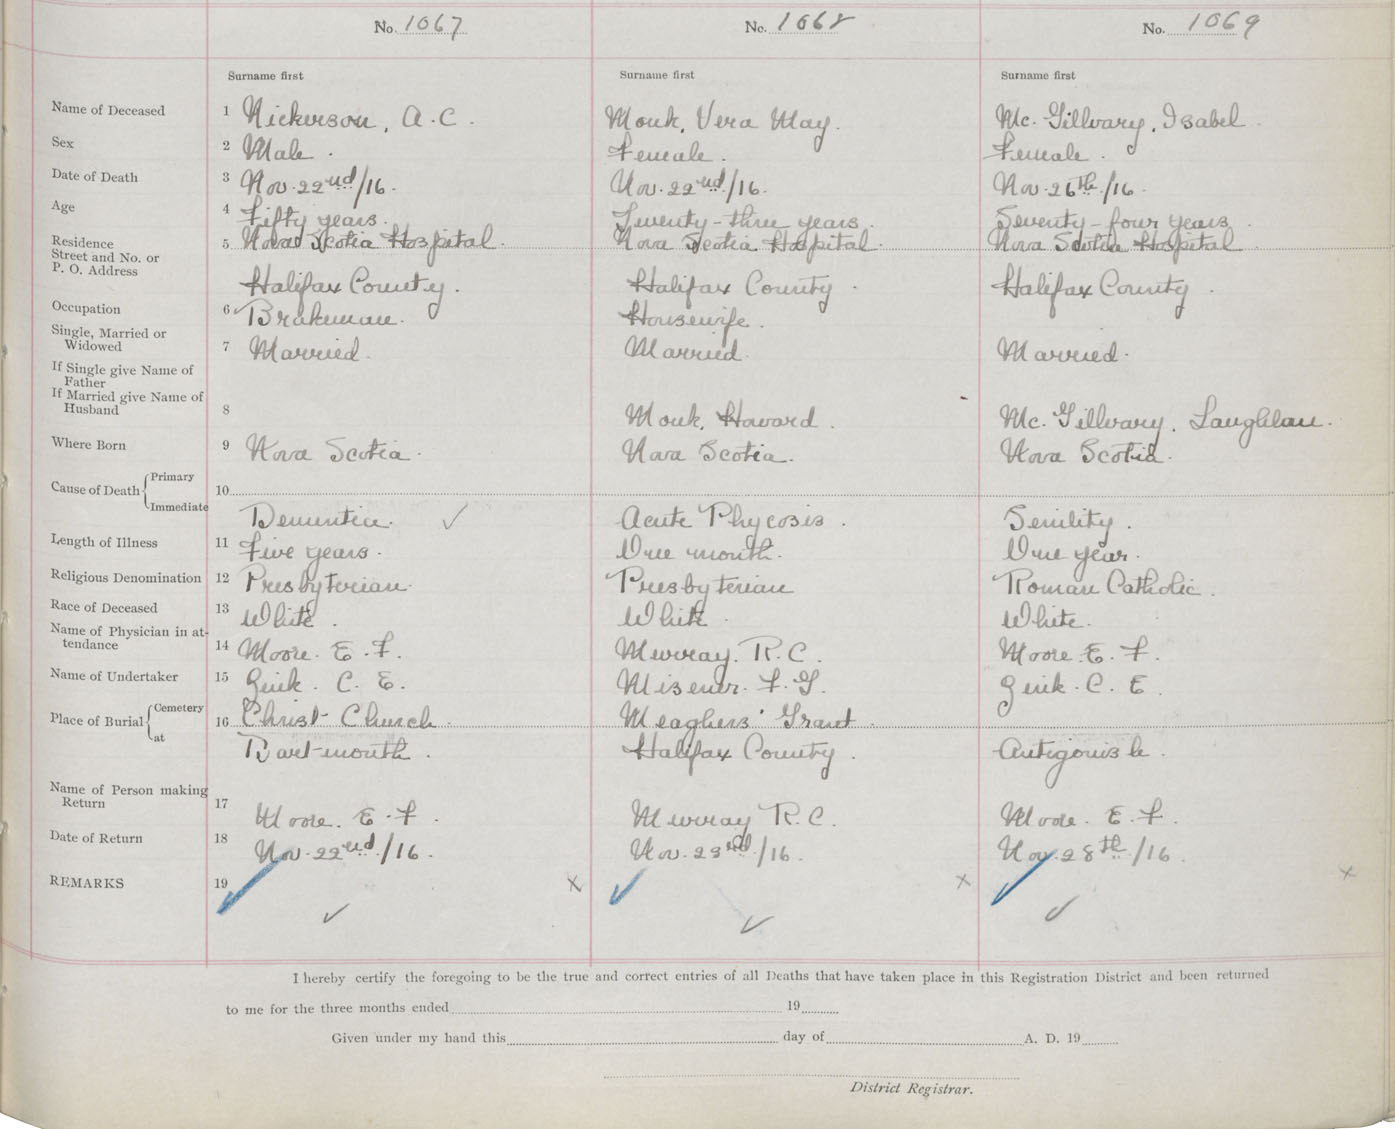 No. 1067 No. 1068 No. 1069
Surname first Surname first Surname first
Name of Deceased 1 Nickerson, A.C. Monk, Vera May. Mc.Gillvary, Isabel
Sex 2 Male. Female. Female.
Date of Death 3 Nov. 22nd/16. Nov. 22nd/16. Nov. 26th/16.
Age 4 Fifty years. Twenty-three years. Seventy-four years.
Residence 5 Nova Scotia Hospital. Nova Scotia Hospital. Nova Scotia Hospital
Street and No. or
P. O. Address
Halifax County. Halifax County. Halifax County.
Occupation 6 Brakeman. Housewife.
Single, Married or
Widowed 7 Married. Married. Married.
If Single give Name of
Father
If Married give Name of
Husband 8 Monk, Howard. Mc.Gillvary, Laughlan.
Where Born 9 Nova Scotia. Nova Scotia. Nova Scotia.
Cause of Death Primary 10
Immediate Dementia. ✓ Acute Phycosis. Senility.
Length of Illness 11 Five years. One month. One year.
Religious Denomination 12 Presbyterian. Presbyterian Roman Catholic.
Race of Deceased 13 White. White. White.
Name of Physician in at-
tendance 14 Moore. E. F. Murray. R.C. Moore. E. F.
Name of Undertaker 15 C. E. Misener. F. G. C. E.
Place of Burial Cemetery 16 Christ Church. Meaghers' Grant.
at Dartmouth. Halifax County. Antigonish.
Name of Person making
Return 17 Moore. E. F. Murray R.C. Moore. E. F.
Date of Return 18 Nov. 22nd/16. Nov. 23rd/16. Nov. 28th/16.
REMARKS 19 ✓ ✓ x ✓ ✓ x ✓ ✓ x
I hereby certify the foregoing to be the true and correct entries of all Deaths that have taken place in this Registration District and been returned
to me for the three months ended 19
Given under my hand this day of A. D. 19
District Registrar.